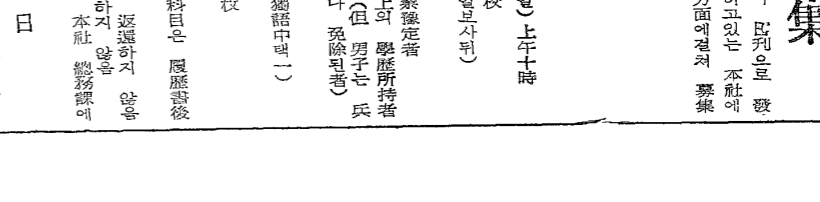 集
民刊으로 發
하고있는 本社에
方面에걸쳐 募集
上午十時
校
일보사뒤)
業豫定者
上의 學歷所持者
(但 男子는 兵
나 免除된者)
獨語中택一)
科目은 履歷書後
返還하지 않음
하지 않음
本社 總務課에
日